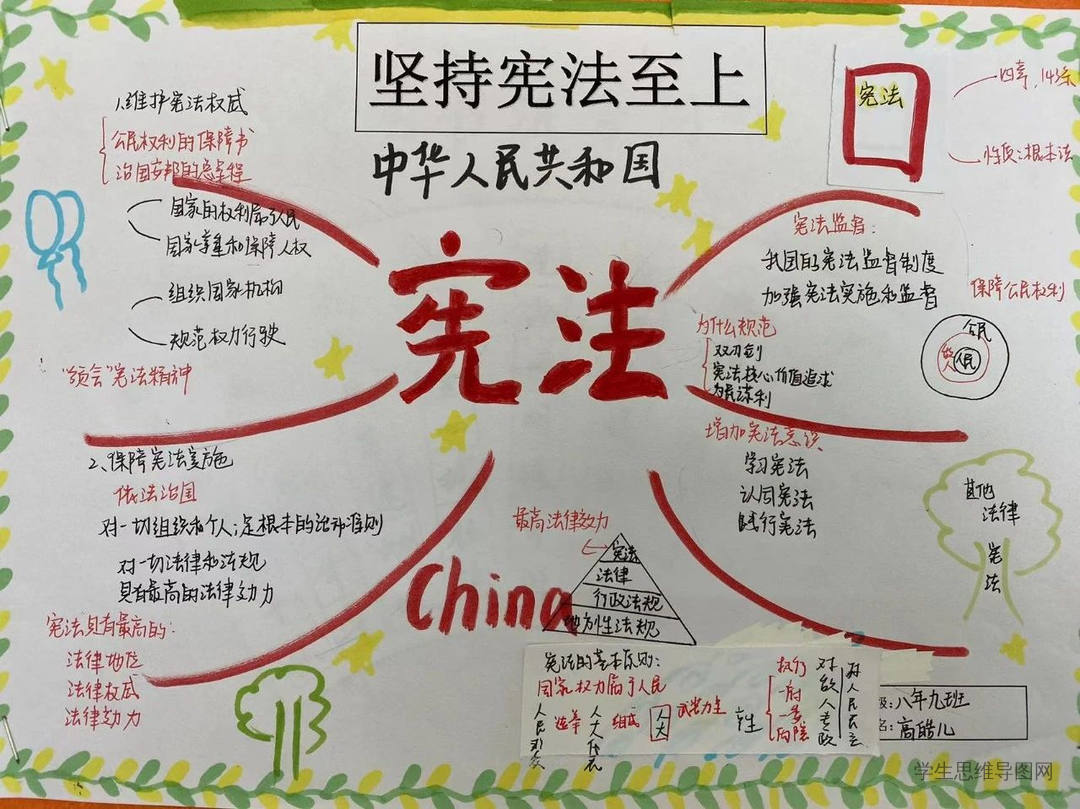 坚持宪法至上
中华人民共和国
宪法
China
1.维护宪法权威
公民权利的保障书
治国安邦的总章程
国家的权利属于人民
国家尊重和保障人权
组织国家机构
规范权力行驶
"领会"宪法精神
2、保障宪法实施
依法治国
对一切组织和个人;是根本的活动准则
对一切法律和法规
具有最高的法律效力
宪法具有最高的:
法律地位
法律权威
法律效力
宪法
四章,14条
性质:根本法
宪法监督:
我国的宪法监督制度
加强宪法实施和监督
保障公民权利
公民
人民
为什么规范
双刃剑
宪法核心价值追求
为民谋利
增加宪法意识
学习宪法
认同宪法
践行宪法
其他
法律
宪
法
最高法律效力
宪法
法律
行政法规
地方性法规
宪法的基本原则:
国家权力属于人民
选举
人大代表
组成
人大
执行
一府
一委
两院
对敌人专政
对人民民主
:八年九班
名:高皓儿
学生思维导图网